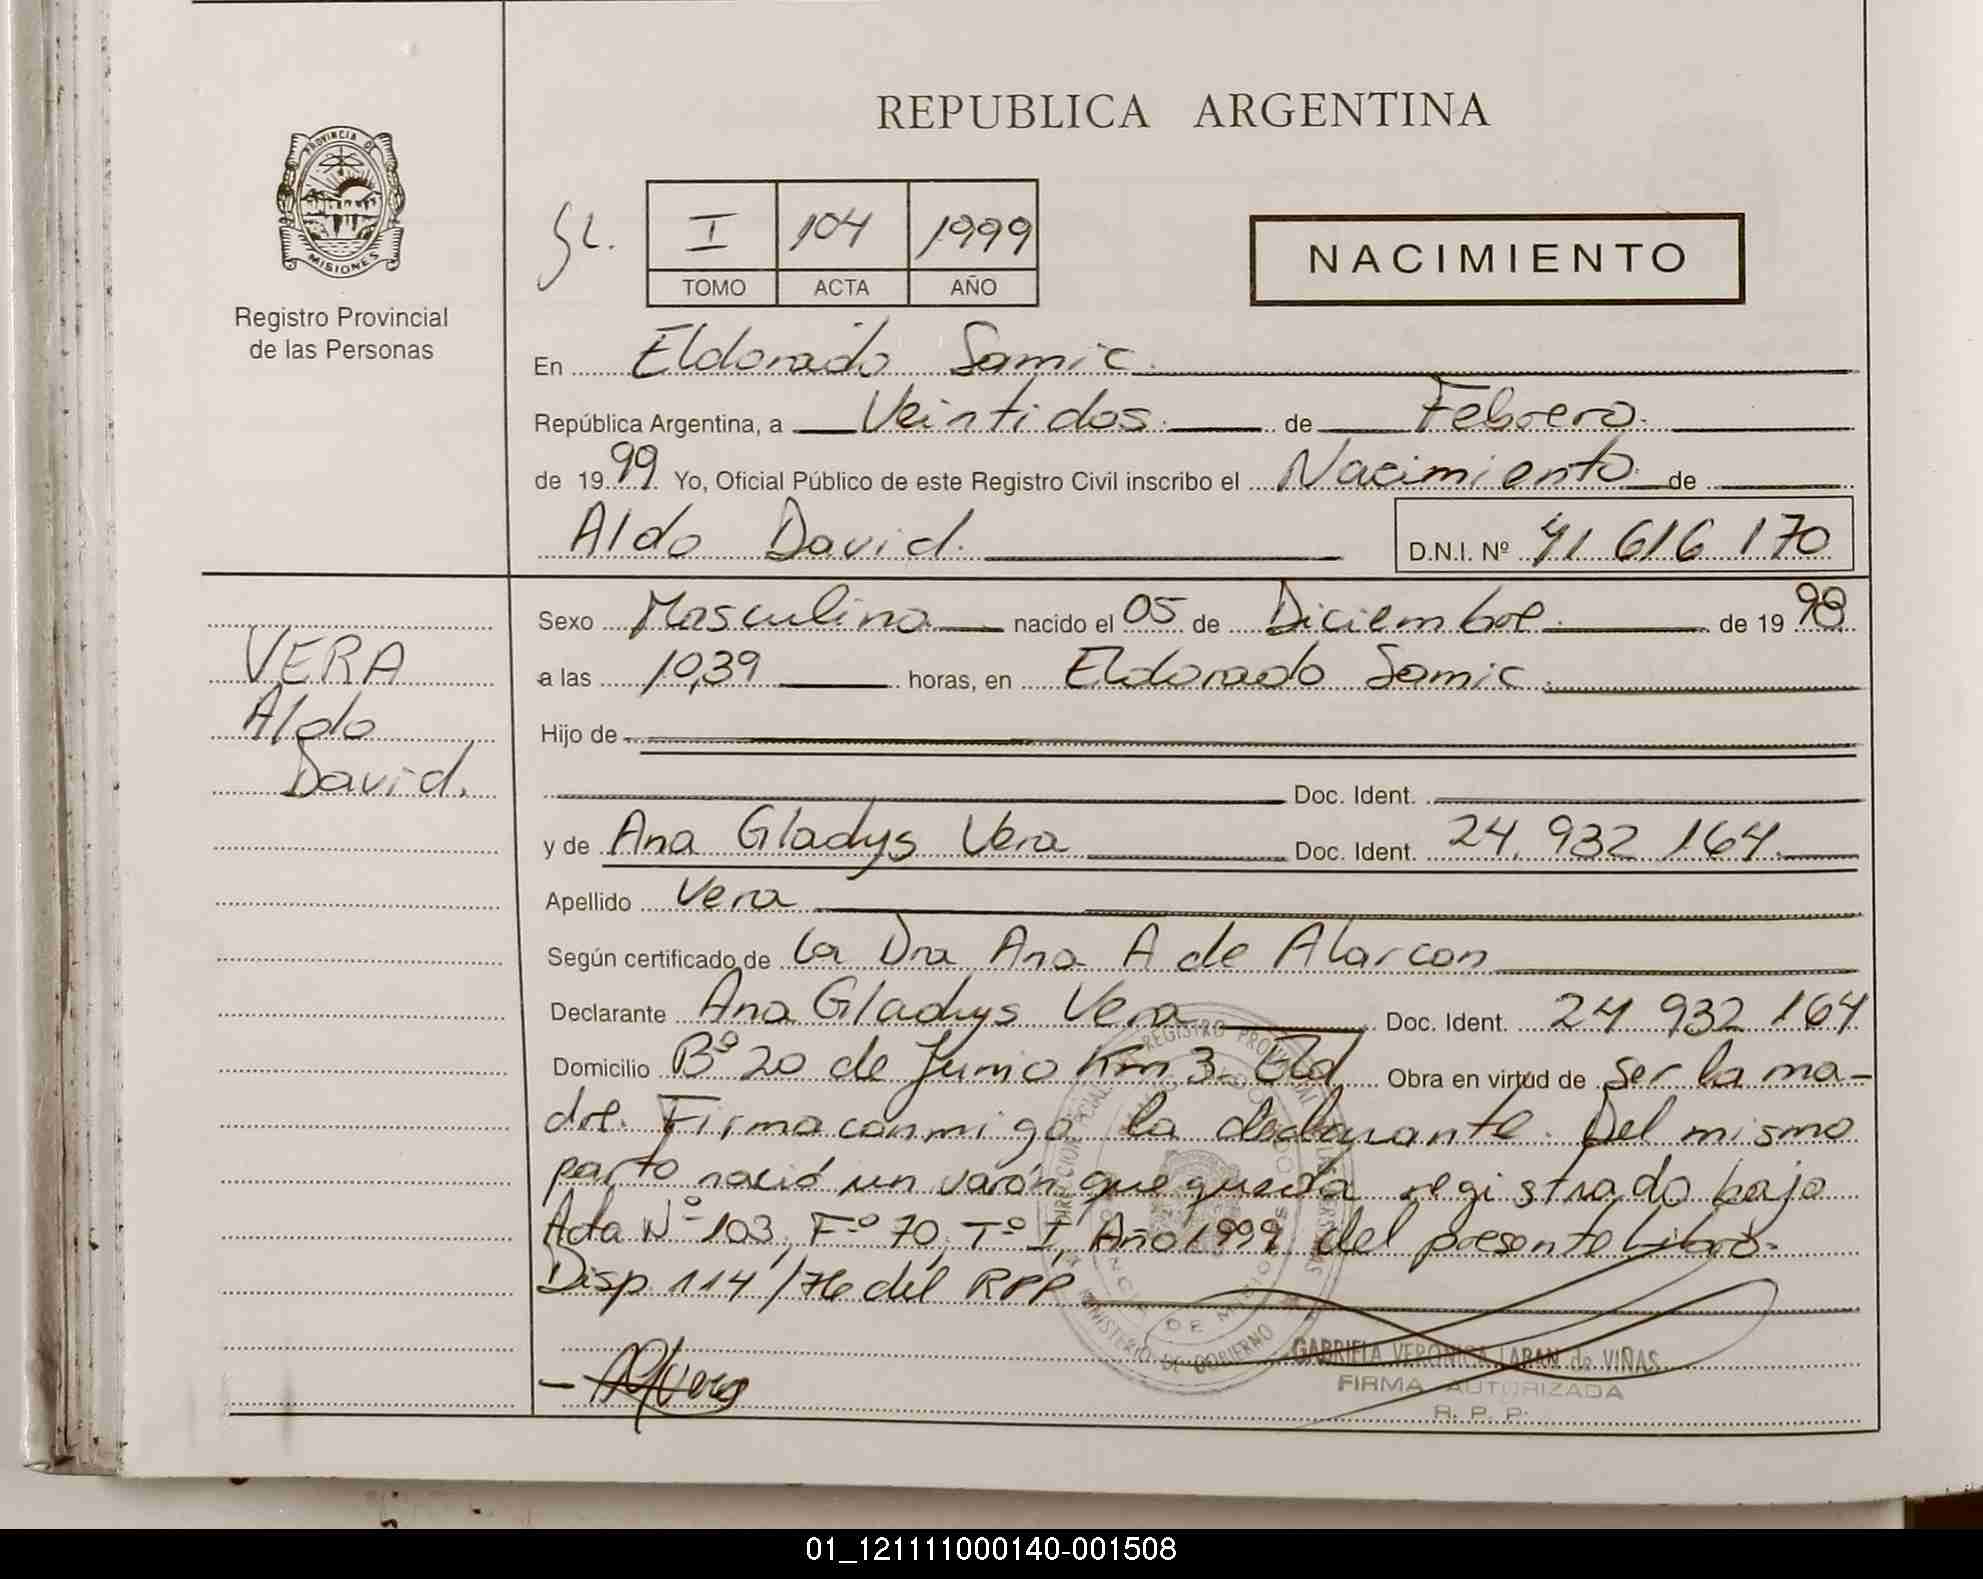 REPUBLICA ARGENTINA
PROVINCIA DE
MISIONES
Registro Provincial
de las Personas
I 104 1999
TOMO ACTA AÑO
NACIMIENTO
En Eldorado Samic.
República Argentina, a Veintidos. de Febrero.
de 1999 Yo, Oficial Público de este Registro Civil inscribo el Nacimiento de
Aldo David. D.N.I. Nº 41 616 170
VERA
Aldo
David.
Sexo Masculino nacido el 05 de Diciembre de 1998
a las 10,39 horas, en Eldorado Samic.
Hijo de
Doc. Ident.
y de Ana Gladys Vera Doc. Ident. 24.932 164.
Apellido Vera
Según certificado de la Dra Ana A de Alarcon
Declarante Ana Gladys Vera Doc. Ident. 24 932 164
Domicilio Bº 20 de Junio Km 3 Eld. Obra en virtud de ser la ma-
dre. Firma conmigo la declarante. Del mismo
parto nació un varón que queda registrado bajo
Acta Nº 103, Fº 70, Tº I, Año 1999 del presente Libro.
Disp. 114/76 del RPP
GABRIELA VERONICA LABAN de VIÑAS
FIRMA AUTORIZADA
R. P. P.
01_121111000140-001508